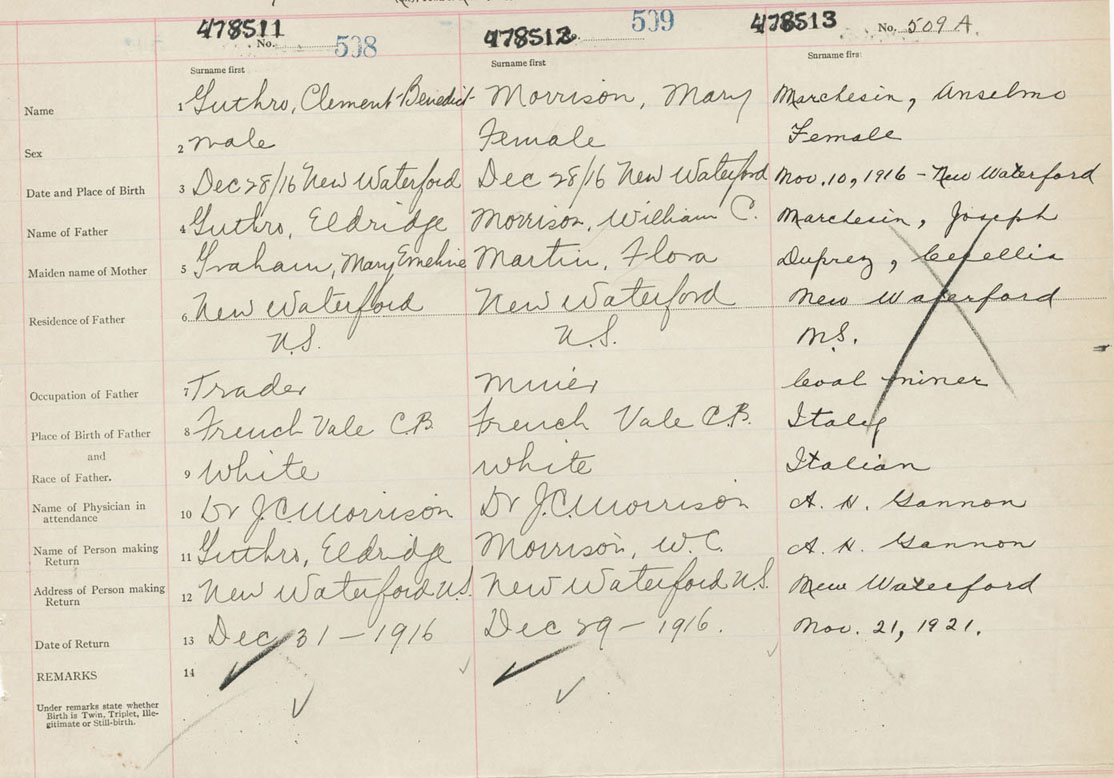 478511 478512 509 478513 No. 509 A
No. 508
Surname first Surname first Surname firs
Name 1 Guthro, Clement-Benedict- Morrison, Mary Marchesin, Anselmo
Sex 2 male Female Female
Date and Place of Birth 3 Dec 28/16 New Waterford Dec 28/16 New Waterford Nov. 10, 1916 - New Waterford
Name of Father 4 Guthro, Eldridge Morrison, William C. Marchesin, Joseph
Maiden name of Mother 5 Graham, Mary Emeline Martin, Flora Duprey, Cecellia
Residence of Father 6 New Waterford New Waterford New Waterford
N.S. N.S. N.S.
Occupation of Father 7 Trader Miner Coal miner
Place of Birth of Father 8 French Vale C.B. French Vale C.B. Italy
and
Race of Father. 9 White white Italian
Name of Physician in attendance 10 Dr J.C. Morrison Dr J.C. Morrison A. H. Gannon
Name of Person making Return 11 Guthro, Eldridge Morrison, W.C. A. H. Gannon
Address of Person making Return 12 New Waterford N.S. New Waterford N.S. New Waterford
Date of Return 13 Dec 31 - 1916 Dec 29 - 1916. Nov. 21, 1921.
REMARKS 14
Under remarks state whether
Birth is Twin, Triplet, Ille-
gitimate or Still-birth.